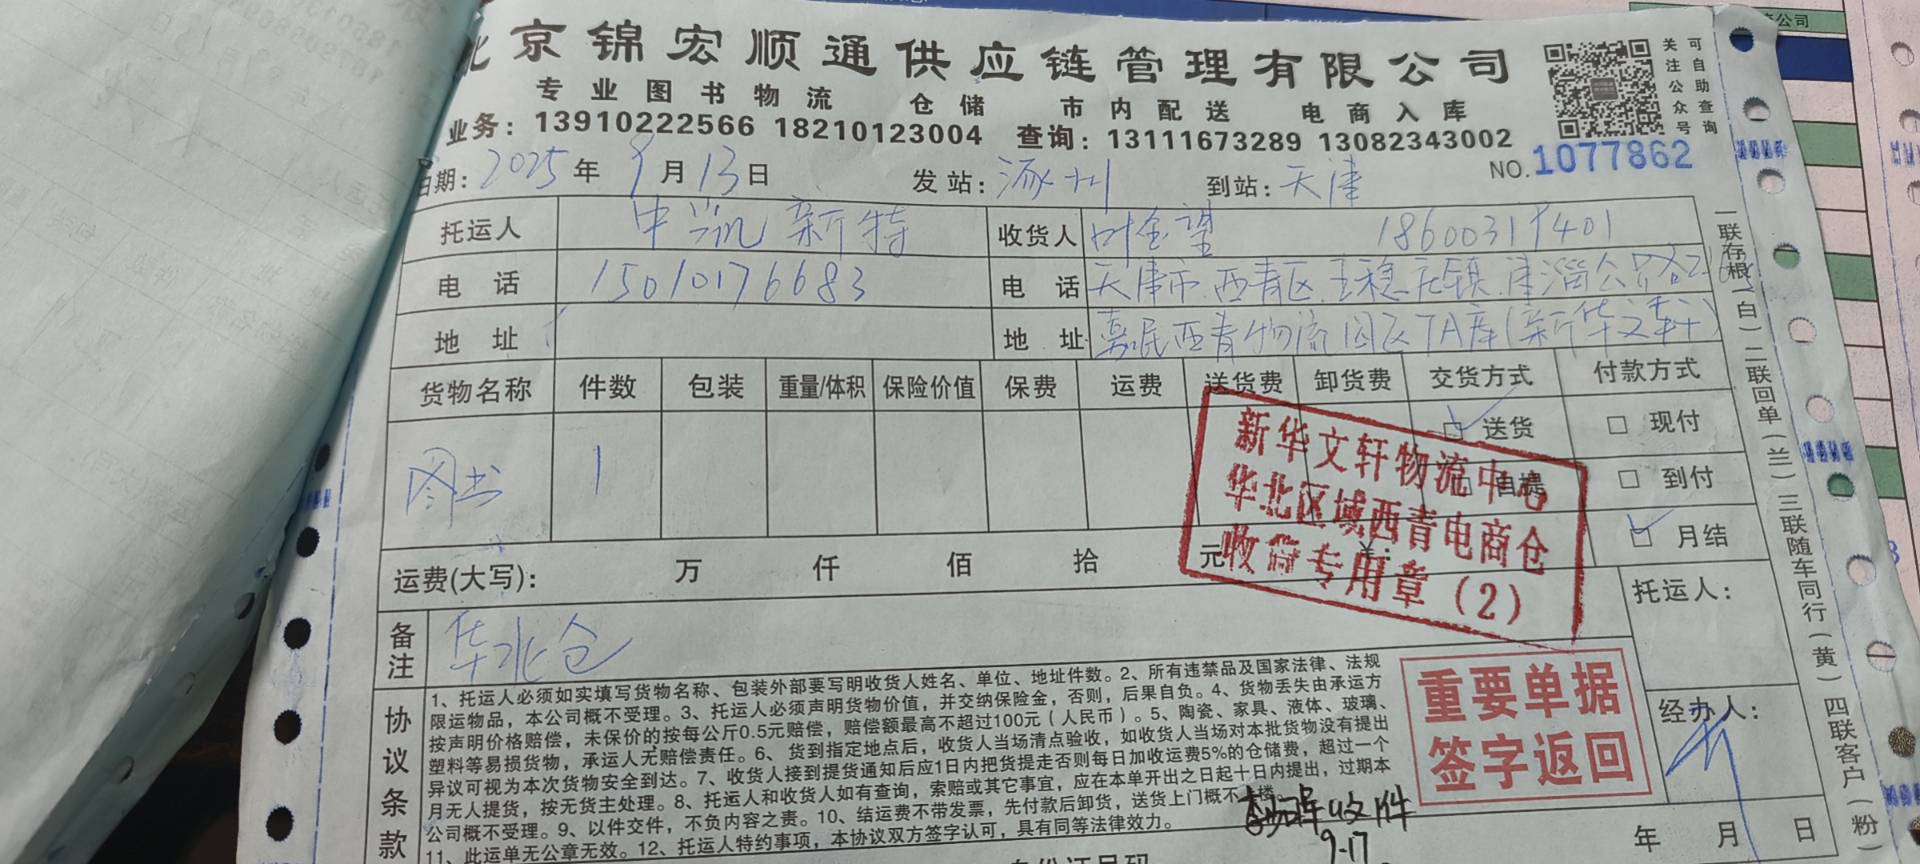 北京锦宏顺通供应链管理有限公司
专业图书物流 仓储 市内配送 电商入库
业务: 13910222566 18210123004 查询: 13111673289 13082343002
可自助查询
关注公众号
日期: 2025年9月13日 发站: 涿州 到站: 天津 NO.1077862
托运人 中凯新特 收货人 叶金望 18600319401
电 话 15010176683 电 话 天津市西青区王稳庄镇津淄公路
地 址 地 址 嘉民西青物流园区7A库(新华文轩)
货物名称 件数 包装 重量/体积 保险价值 保费 运费 送货费 卸货费 交货方式 付款方式
图书 1
☑ 送货
□ 自提
□ 现付
□ 到付
☑ 月结
运费(大写): 万 仟 佰 拾 元 ¥:
新华文轩物流中心
华北区域西青电商仓
收货专用章(2)
备注 华北仓
托运人:
经办人:
年 月 日
协议条款
1、托运人必须如实填写货物名称、包装外部要写明收货人姓名、单位、地址件数。2、所有违禁品及国家法律、法规
限运物品，本公司概不受理。3、托运人必须声明货物价值，并交纳保险金，否则，后果自负。4、货物丢失由承运方
按声明价格赔偿，未保价的按每公斤0.5元赔偿，赔偿额最高不超过100元（人民币）。5、陶瓷、家具、液体、玻璃、
塑料等易损货物，承运人无赔偿责任。6、货到指定地点后，收货人当场清点验收，如收货人当场对本批货物没有提出
异议可视为本次货物安全到达。7、收货人接到提货通知后应1日内把货提走否则每日加收运费5%的仓储费，超过一个
月无人提货，按无货主处理。8、托运人和收货人如有查询，索赔或其它事宜，应在本单开出之日起十日内提出，过期本
公司概不受理。9、以件交件，不负内容之责。10、结运费不带发票，先付款后卸货，送货上门概不上楼。
11、此运单无公章无效。12、托运人特约事项，本协议双方签字认可，具有同等法律效力。
重要单据
签字返回
收件
9-17
一联存根(白)二联回单(兰)三联随车同行(黄)四联客户(粉)